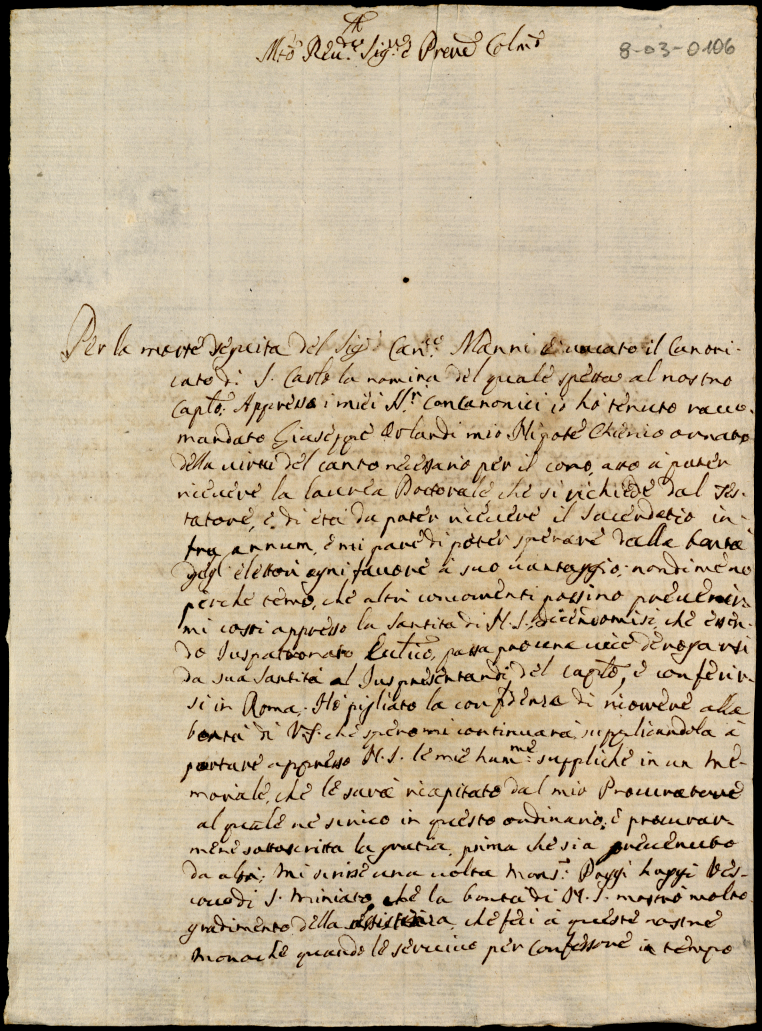 Mto Revdo Sigre e Prene Colmo
8-03-0106
Per la morte seguita del Sigr Cance Manni è vacato il Canoni-
cato di S. Carlo la nomina del quale spetta al nostro
Caplo. Appresso i miei SSri Concanonici io hò tenuto racco-
mandato Giuseppe Orlandi mio Nipote Chierico ornato
della virtù del canto necessario per il coro, atto à poter
ricevere la laurea Dottorale, che si richiede dal Tes-
tatore, e di età da poter ricevere il Sacerdotio in-
fra annum, e mi pare di poter sperare dalla bontà
degl'elettori ogni favore à suo vantaggio, nondimeno
perche temo, che altri concorrenti possino prevenir-
mi costì appresso la Santità di N. S. dicendomisi, che essen-
do Juspatronato Eccltico, possa pro una vice derogarsi
da sua Santità al Juspresentandi del Caplo, e conferir-
si in Roma. Hò pigliato la confidenza di ricorrere alla
bontà di V.S. che spero mi continuarà, supplicandola à
portare appresso N. S. le mie humme suppliche in un me-
moriale, che le sarà ricapitato dal mio Procuratore
al quale ne scrivo in questo ordinario, e procurar-
mene sottoscritta la gratia, prima che sia prevenuto
da altri; mi scrisse una volta Monsr Poggi hoggi Ves-
covo di S. Miniato, che la bontà di N. S. mostrò molto
gradimento della che feci à queste nostre
Monache quando le servivo per Confessore in tempo